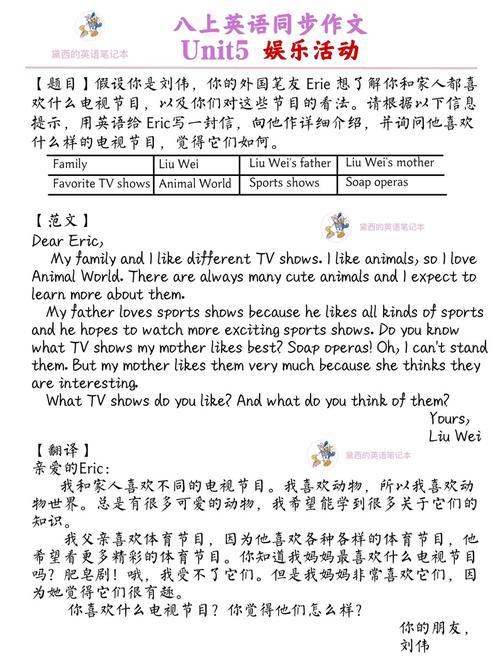 八上英语同步作文
黛西的英语笔记本
Unit5 娱乐活动
【题目】假设你是刘伟，你的外国笔友 Erie 想了解你和家人都喜
欢什么电视节目，以及你们对这些节目的看法。请根据以下信息
提示，用英语给 Eric写一封信，向他作详细介绍，并询问他喜欢
什么样的电视节目，觉得它们如何。
Family Liu Wei Liu Wei's father Liu Wei's mother
Favorite TV shows Animal World Sports shows Soap operas
【范文】
黛西的英语笔记本
Dear Eric,
My family and I like different TV shows. I like animals, so I love
Animal World. There are always many cute animals and I expect to
learn more about them.
My father loves sports shows because he likes all kinds of sports
and he hopes to watch more exciting sports shows. Do you know
what TV shows my mother likes best? Soap operas! Oh, I can't stand
them. But my mother likes them very much because she thinks they
are interesting.
What TV shows do you like? And what do you think of them?
Yours,
Liu Wei
【翻译】
黛西的英语笔记本
亲爱的Eric：
我和家人喜欢不同的电视节目。我喜欢动物，所以我喜欢动
物世界。总是有很多可爱的动物，我希望能学到很多关于它们的
知识。
我父亲喜欢体育节目，因为他喜欢各种各样的体育节目，他
希望看更多精彩的体育节目。你知道我妈妈最喜欢什么电视节目
吗？肥皂剧！哦，我受不了它们。但是我妈妈非常喜欢它们，因
为她觉得它们很有趣。
你喜欢什么电视节目？你觉得他们怎么样？
你的朋友，
刘伟